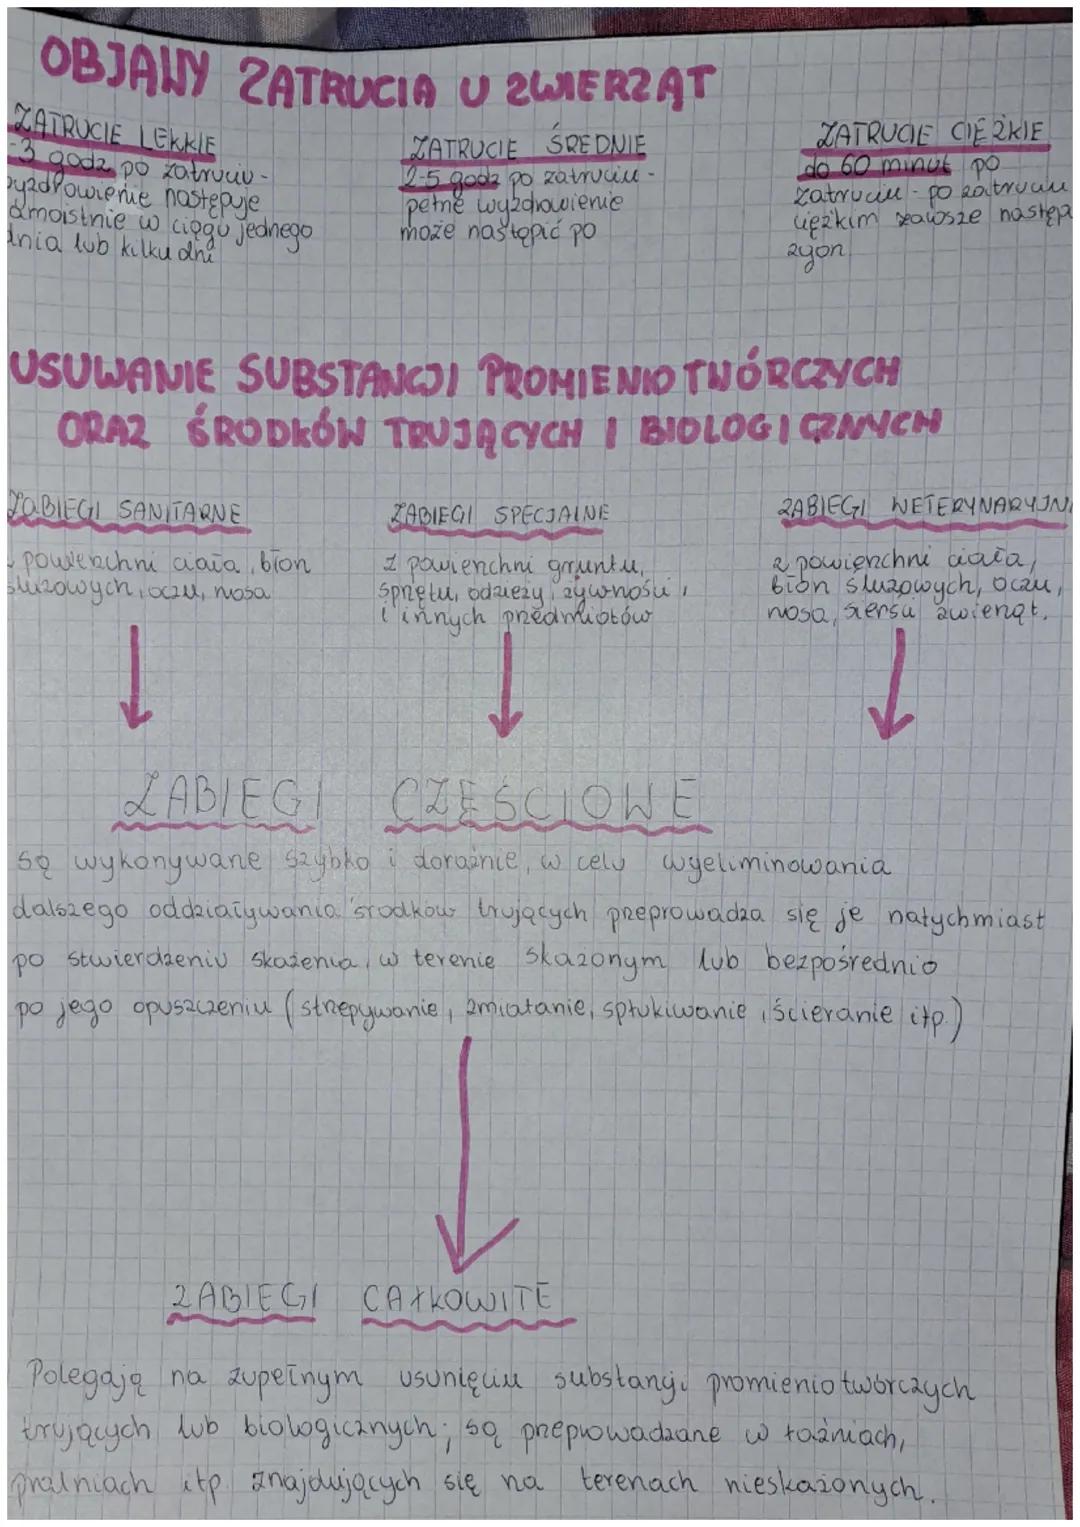 OBJAWY ZATRUCIA U ZWIERZĄT
ZATRUCIE LEKKIE
-3 godz po zatruciu -
wyzdrowienie następuje
samoistnie w ciągu jednego
dnia lub kilku dni
ZATRUCIE ŚREDNIE
2-5 godz po zatruciu -
pełne wyzdrowienie
może nastąpić po
ZATRUCIE CIĘŻKIE
do 60 minut po
zatruciu - po zatruciu
ciężkim zawsze następ
zgon
USUWANIE SUBSTANCJI PROMIENIOTWÓRCZYCH
ORAZ ŚRODKÓW TRUJĄCYCH I BIOLOGICZNYCH
ZABIEGI SANITARNE
z powierzchni ciała, błon
śluzowych, oczu, nosa
ZABIEGI SPECJALNE
z powierzchni gruntu,
sprzętu, odzieży, żywności,
i innych przedmiotów
ZABIEGI WETERYNARYJN
z powierzchni ciała,
błon śluzowych, oczu,
nosa, sierści zwierząt.
ZABIEGI CZĘŚCIOWE
są wykonywane szybko i doraźnie, w celu wyeliminowania
dalszego oddziaływania środków trujących przeprowadza się je natychmiast
po stwierdzeniu skażenia, w terenie skażonym lub bezpośrednio
po jego opuszczeniu (strzepywanie, zmiatanie, spłukiwanie, ścieranie itp.)
ZABIEGI CAŁKOWITE
Polegają na zupełnym usunięciu substancji promieniotwórczych
trujących lub biologicznych; są przeprowadzane w łaźniach,
pralniach itp. znajdujących się na terenach nieskażonych.